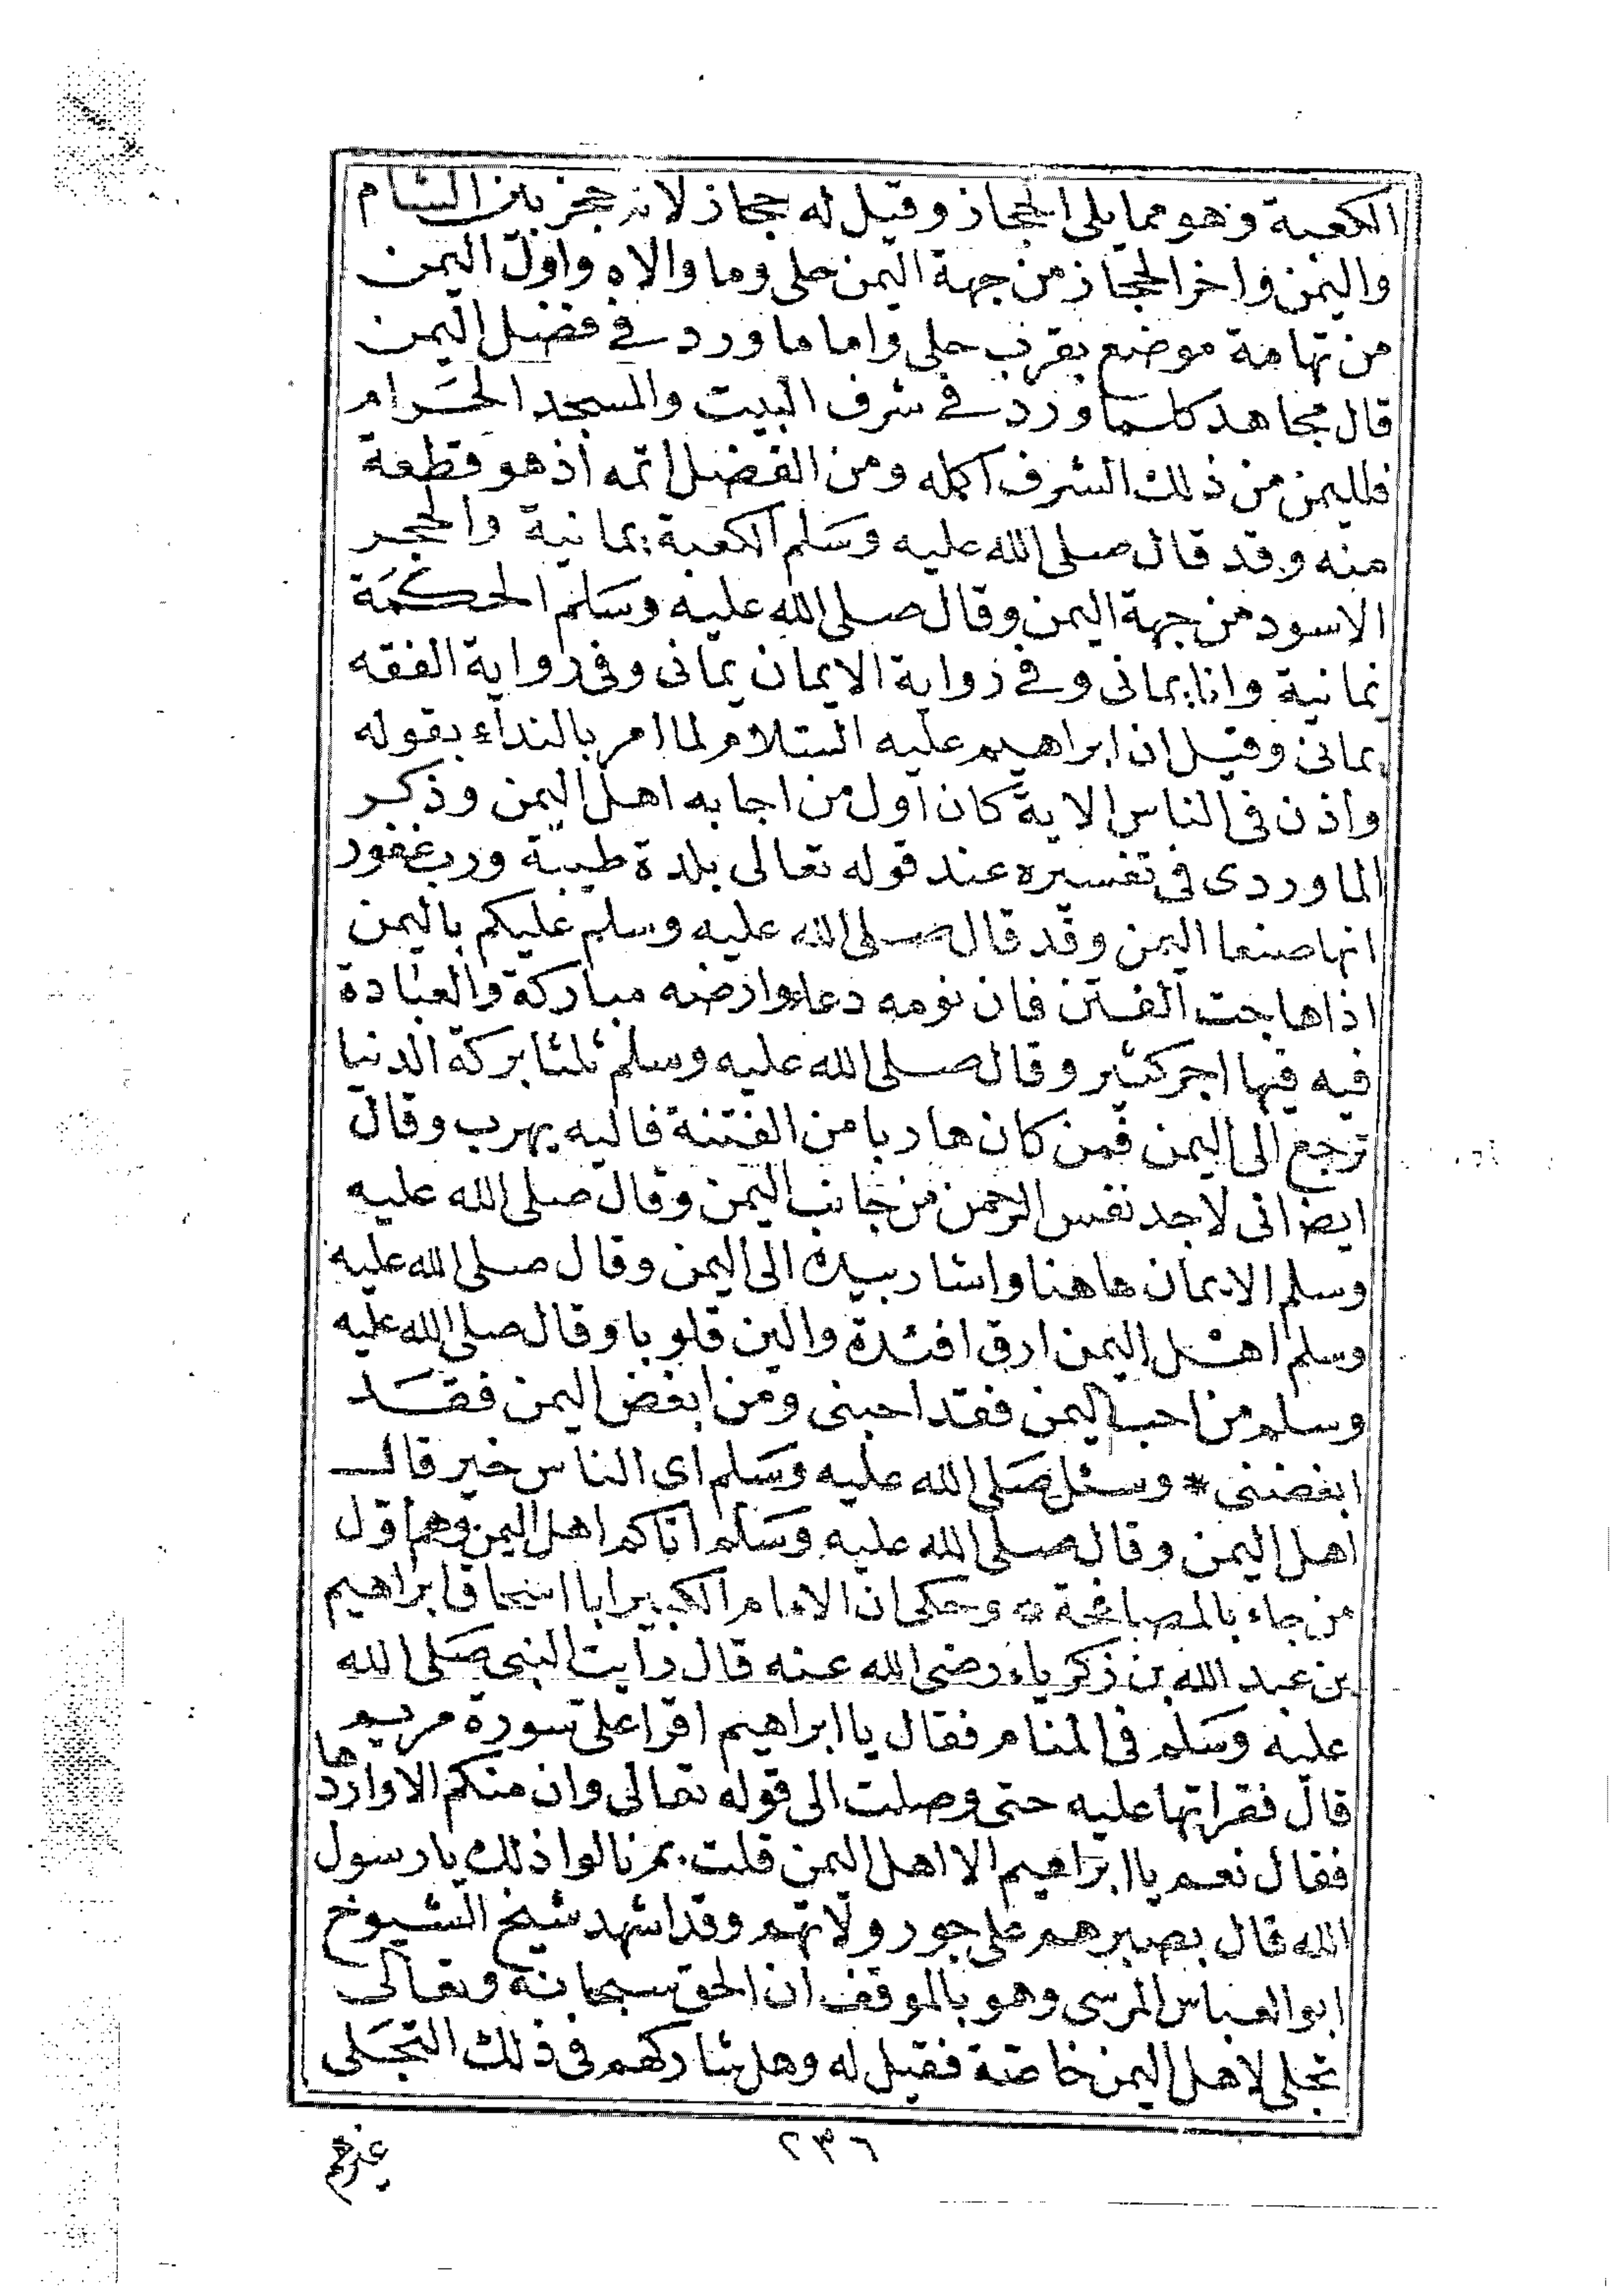 الكعبة وهو مما يلي الحجاز وقيل له حجاز لانه حجز بين الشام
واليمن واخر الحجاز من جهة اليمن حلى وما والاه واول اليمن
من تهامة موضع بقرب حلى واما ما ورد في فضل اليمن
قال مجاهد كلما ورد في شرف البيت والمسجد الحرام
فلليمن من ذلك الشرف اكمله ومن الفضل اتمه اذ هو قطعة
منه وقد قال صلى الله عليه وسلم الكعبة يمانية والحجر
الاسود من جهة اليمن وقال صلى الله عليه وسلم الحكمة
يمانية وانا يمانى وفي رواية الايمان يمانى وفى رواية الفقه
يمانى وقيل ان ابراهيم عليه السلام لما امر بالنداء بقوله
واذن فى الناس الاية كان اول من اجابه اهل اليمن وذكر
الماوردى فى تفسيره عند قوله تعالى بلدة طيبة ورب غفور
انها صنعا اليمن وقد قال صلى الله عليه وسلم عليكم باليمن
اذا هاجت الفتن فان نومه دعاء وارضه مباركة والعبادة
فيه فيها اجر كثير وقال صلى الله عليه وسلم ثلثا بركة الدنيا
ترجع الى اليمن فمن كان هاربا من الفتنة فاليه يهرب وقال
ايضا انى لاجد نفس الرحمن من جانب اليمن وقال صلى الله عليه
وسلم الايمان هاهنا واشار بيده الى اليمن وقال صلى الله عليه
وسلم اهل اليمن ارق افئدة والين قلوبا وقال صلى الله عليه
وسلم من احب اليمن فقد احبنى ومن ابغض اليمن فقد
ابغضنى * وسئل صلى الله عليه وسلم اى الناس خير قال
اهل اليمن وقال صلى الله عليه وسلم اتاكم اهل اليمن وهم اول
من جاء بالمصافحة * وحكى ان الامام الكبير ابا اسحاق ابراهيم
بن عبد الله بن زكرياء رضى الله عنه قال رايت النبى صلى الله
عليه وسلم فى المنام فقال يا ابراهيم اقرا على سورة مريم
قال فقراتها عليه حتى وصلت الى قوله تعالى وان منكم الا واردها
فقال نعم يا ابراهيم الا اهل اليمن قلت بم نالوا ذلك يا رسول
الله قال بصبرهم على جور ولاتهم وقد اشهد شيخ الشيوخ
ابو العباس المرسى وهو بالموقف ان الحق سبحانه وتعالى
تجلى لاهل اليمن خاصة فقيل له وهل شاركهم فى ذلك التجلى
٢٣٦
غيرهم